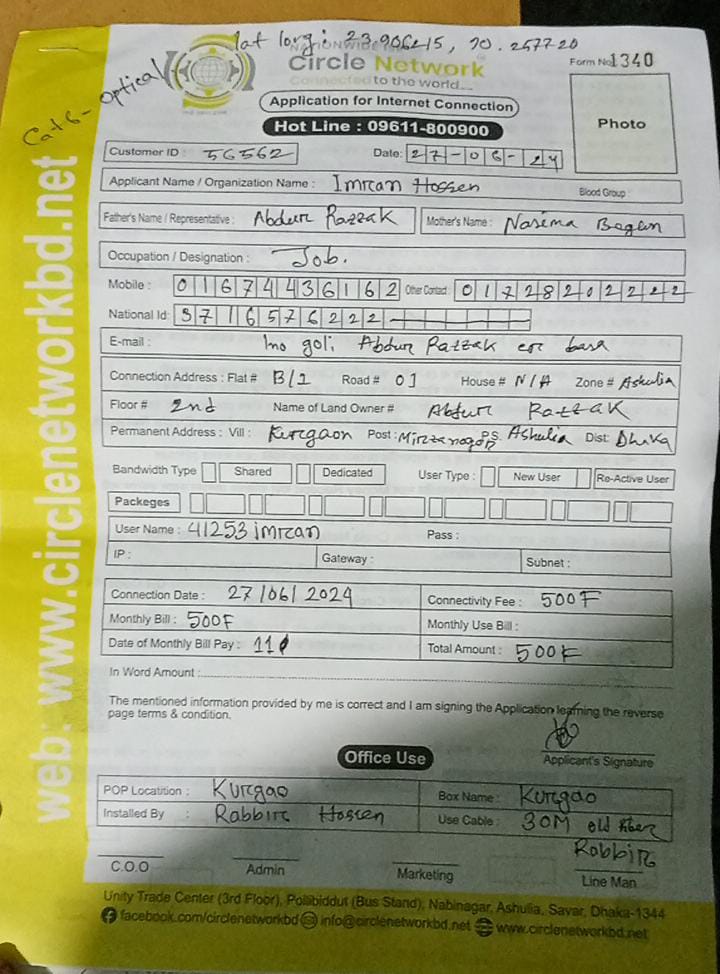 lat long: 23.906215, 90.257720
NATIONWIDE
Circle Network
Form No: 1340
Connected to the world....
Cat6- optical
Application for Internet Connection
Photo
Hot Line : 09611-800900
Customer ID : 56562 Date: 27-06-24
Applicant Name / Organization Name : Imran Hossen Blood Group :
Father's Name / Representative : Abdur Razzak Mother's Name : Nasima Begum
Occupation / Designation : Job.
Mobile : 01674436162 Other Contact : 01728202222
National Id: 3716576222
E-mail : Ino goli Abdur Razzak er basa
Connection Address : Flat # B/1 Road # 01 House # N/A Zone # Ashulia
Floor # 2nd Name of Land Owner # Abdur Razzak
Permanent Address : Vill : Kurgaon Post : Mirzanogor P.S. Ashulia Dist: Dhaka
Bandwidth Type Shared Dedicated User Type : New User Re-Active User
Packeges
User Name : 41253imran Pass :
IP : Gateway : Subnet :
Connection Date : 27/06/2024 Connectivity Fee : 500F
Monthly Bill : 500F Monthly Use Bill :
Date of Monthly Bill Pay : 11 Total Amount : 500F
In Word Amount :
The mentioned information provided by me is correct and I am signing the Application learning the reverse
page terms & condition.
Applicant's Signature
Office Use
POP Locatition : Kurgao Box Name : Kurgao
Installed By : Rabbir Hossen Use Cable : 30M old fiber
Rabbir
C.O.O Admin Marketing Line Man
Unity Trade Center (3rd Floor), Pollibiddut (Bus Stand), Nabinagar, Ashulia, Savar, Dhaka-1344
facebook.com/circlenetworkbd info@circlenetworkbd.net www.circlenetworkbd.net
web: www.circlenetworkbd.net